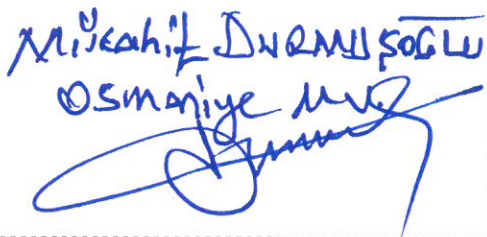 Mücahit DURMUŞOĞLU
Osmaniye Mv.